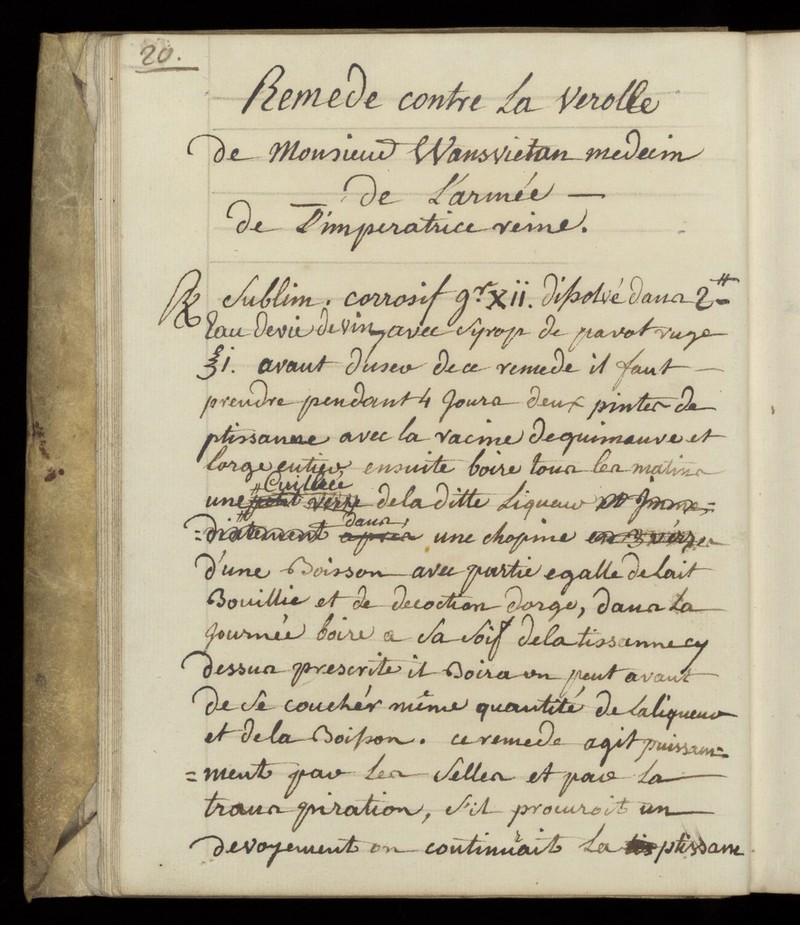 20.
Remede contre La verolle
de Monsieur Wansvietan medecin
— de L'armée —
de L'imperatrice reine.
℞ Sublim. corrosif gr. Xii. dissolvé dans 2 ₶
Eau de vie de vin, avec Syrop de pavot ruge
℥i. avant duser de ce remede il faut —
prendre pendant 4 Jours deux pintes de
ptissanne avec la racine de guimauve et
lorge entier ensuite boire tous les matins
Cuilleé
une petit verre de la ditte Liqueur et Imme=
dans
=diatement apres une chopine en 3 verres
d'une Boisson avec partie egalle de lait
Bouillie et de decoction dorge, dans La
Journée boire a Sa Soif de la tissanne cy
dessus prescrite il Boira un peut avant
de Se couchér même quantité de la liqueur
et de la Boisson. ce remede agit puissam=
=ment par les Selles et par La
trans piration, S'il procuroit un
devoyement on continurait La tis ptissane